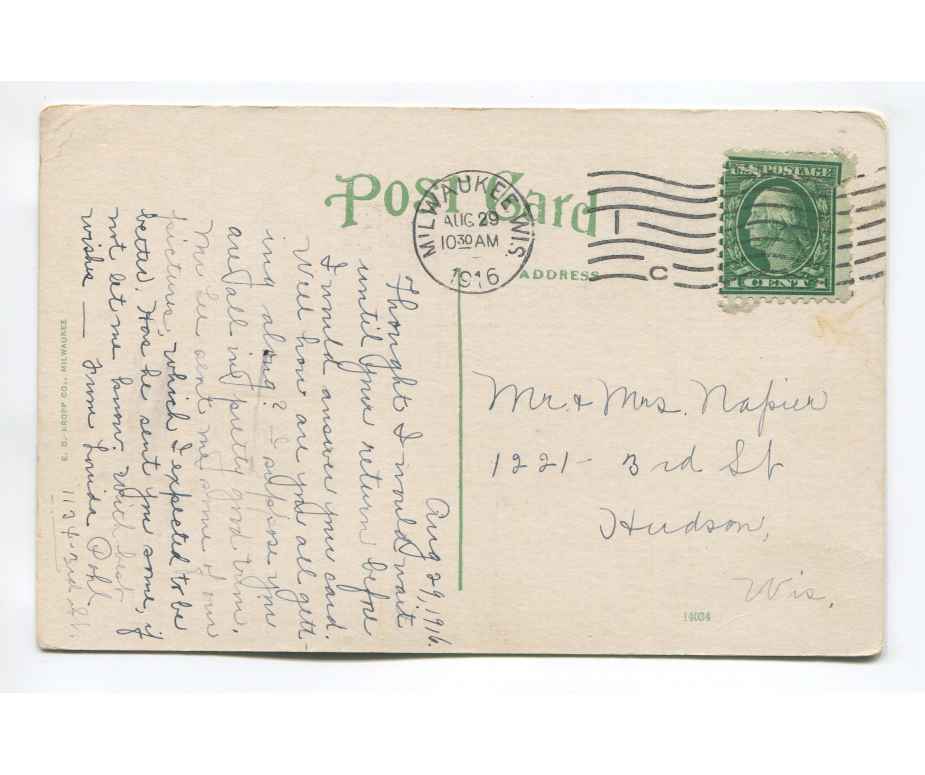 Post Card
MILWAUKEE, WIS.
AUG 29
10 30 AM
1916
C
U.S. POSTAGE
1 CENT 1
ADDRESS
Aug 29, 1916.
Thought I would wait
until your return before
I would answer your card.
Well how are you all gett-
ing along? I suppose you
are all in pretty good trim.
sent me some of our
pictures, which I expected to be
better. Has he sent you some, if
not let me know. With best
wishes — From Louida Pohl
1134-3rd St.
Mr. & Mrs. Napier
1221- 3rd St
Hudson,
Wis.
14034
E. C. KROPP CO., MILWAUKEE